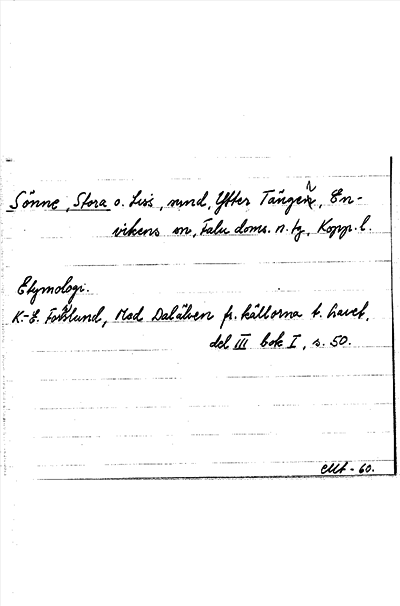 Sönne, Stora o. Liss, sund, Ytter Tängen, En-
vikens sn, Falu doms. n. tg, Kopp. l.
Etymologi.
K.-E. Forsslund, Med Dalälven fr. källorna t. havet,
del III bok I, s. 50.
60.